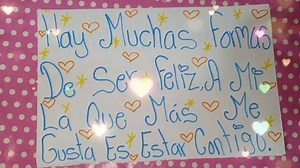 Hay Muchas Formas
De Ser Feliz. A Mi
La Que Más Me
Gusta Es Estar Contigo.